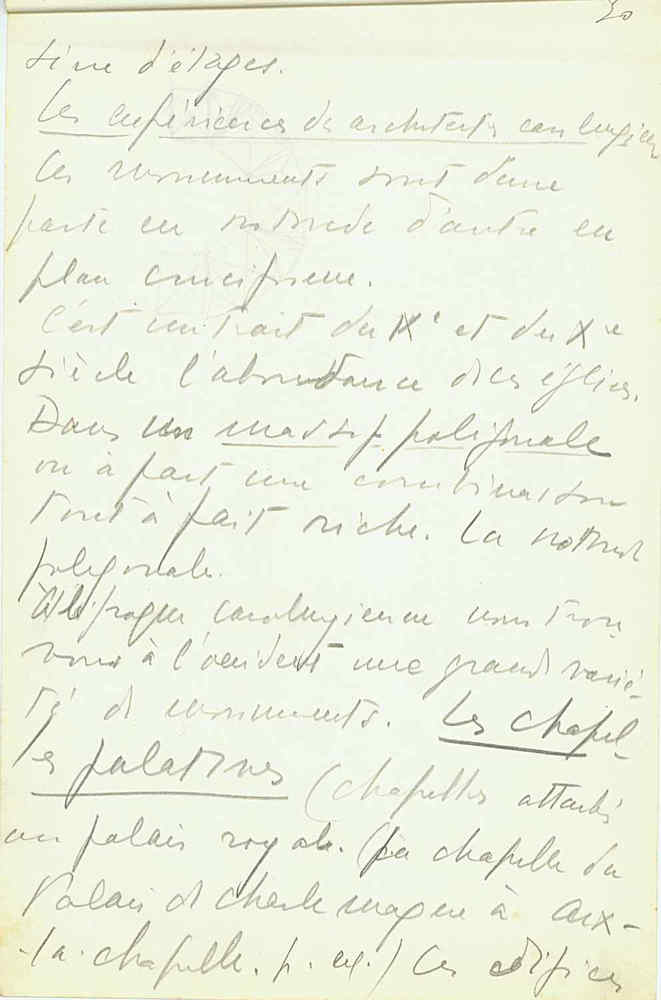 50
série d'étages.
Les expériences des architectes carolingiens
Ces monuments sont d'une
part en rotonde d'autre en
plan cruciforme.
C'est un trait du IXe et du Xe
siècle l'abondance de ces églises.
Dans un massif poligonale
on a fait une combinaison
tout à fait riche. La rotonde
poligonale.
A l'époque carolingienne nous trou-
vons à l'occident une grand varié-
té de monuments. Les chapel-
les palatines (chapelles attachés
au palais royale. (La chapelle du
Palais de Charlemagne à Aix-
-la-chapelle. p. ex.) Ces édifices